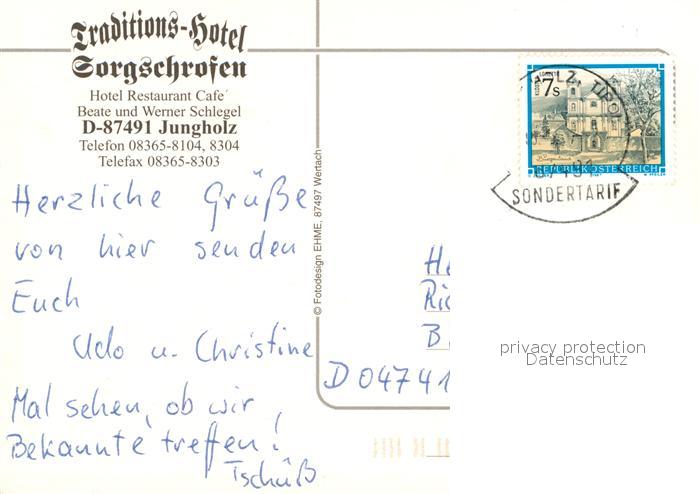 Traditions-Hotel
Sorgschrofen
Hotel Restaurant Cafe´
Beate und Werner Schlegel
D-87491 Jungholz
Telefon 08365-8104, 8304
Telefax 08365-8303
Herzliche Grüße
von hier senden
Euch
Udo u. Christine
Mal sehen, ob wir
Bekannte treffen!
Tschüß
© Fotodesign EHME, 87497 Wertach
7s
REPUBLIK ÖSTERREICH
SONDERTARIF
D 04741
privacy protection
Datenschutz